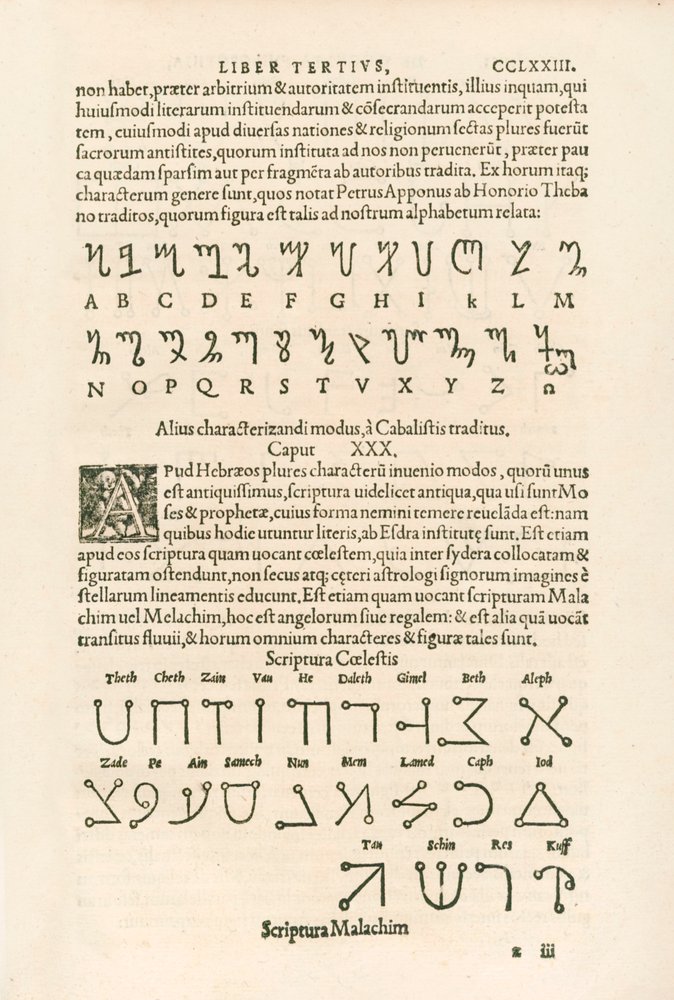 LIBER TERTIVS, CCLXXIII.
non habet, præter arbitrium & autoritatem inſtituentis, illius inquam, qui
huiuſmodi literarum inſtituendarum & cõſecrandarum acceperit poteſta
tem, cuiuſmodi apud diuerſas nationes & religionum ſectas plures fuerũt
ſacrorum antiſtites, quorum inſtituta ad nos non peruenerũt, præter pau
ca quædam ſparſim aut per fragmẽta ab autoribus tradita. Ex horum itaq;
characterum genere ſunt, quos notat Petrus Apponus ab Honorio Theba
no traditos, quorum figura eſt talis ad noſtrum alphabetum relata:
A B C D E F G H I k L M
N O P Q R S T V X Y Z Ω
Alius characterizandi modus, à Cabaliſtis traditus.
Caput XXX.
APud Hebræos plures characterũ inuenio modos, quorũ unus
eſt antiquiſſimus, ſcriptura uidelicet antiqua, qua uſi ſunt Mo
ſes & prophetæ, cuius forma nemini temere reuelãda eſt: nam
quibus hodie utuntur literis, ab Eſdra inſtitutę ſunt. Eſt etiam
apud eos ſcriptura quam uocant cœleſtem, quia inter ſydera collocatam &
figuratam oſtendunt, non ſecus atq; cęteri aſtrologi ſignorum imagines è
ſtellarum lineamentis educunt. Eſt etiam quam uocant ſcripturam Mala
chim uel Melachim, hoc eſt angelorum ſiue regalem: & eſt alia quã uocãt
tranſitus fluuii, & horum omnium characteres & figuræ tales ſunt.
Scriptura Cœleſtis
Theth Cheth Zain Vau He Daleth Gimel Beth Aleph
Zade Pe Ain Samech Nun Mem Lamed Caph Iod
Tau Schin Res Kuff
Scriptura Malachim
z iii